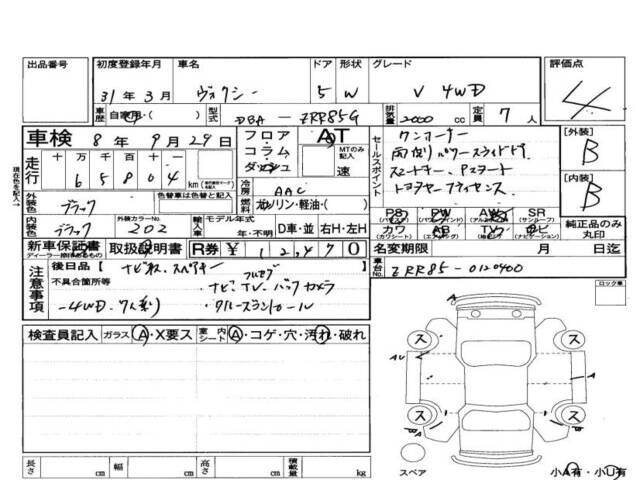 出品番号 初度登録年月 車名 ドア 形状 グレード 評価点
31年 3月 ヴォクシー 5 W V 4WD 4
車歴 自家用・( ) 型式 DBA-ZRR85G 排気量 2000 cc 定員 7 人
車検 8年 9月 29日
フロア AT
コラム MTのみ記入
ダッシュ 速
セールスポイント
ワンオーナー
両側パワースライドドア
スマートキー、Pスタート
トヨタセーフティセンス
[外装] B
[内装] B
走行 十 万 千 百 十 一
6 5 8 0 4 km
現在色を記入→
外装色 ブラック 色替車は色替前( )
冷房 AAC
燃料 ガソリン・軽油・( )
内装色 ブラック 外装カラーNo. 202
輸入車 モデル年式 年・不明 D車・並 右H・左H
PS (パワステ) PW (パワーウィンド) AW (アルミホイール) SR (サンルーフ)
カワ (カワシート) AB (エアバッグ) TV ナビ (ナビゲーション)
純正品のみ丸印
新車保証書 ディーラー捺印あるもの 取扱説明書 R券 ¥ 1 2,4 7 0
名変期限 月 日迄
注意事項
後日品 [ ナビ
不具合箇所等 フルセグ
・ナビ、TV、バックカメラ
-4WD、7人乗り ・クルーズコントロール
車台No. ZRR85-0120400
ロック車
検査員記入 ガラス A・X要ス 室内シート A・コゲ・穴・汚れ・破れ
A
ス ス
AU A
ス ス
A A
スペア 小A有・小U有
長さ cm 幅 cm 高さ cm 積載量 kg